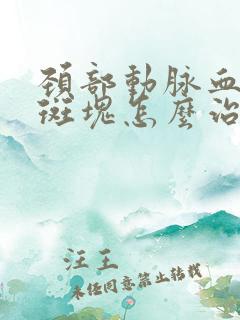 頚部動脉血
斑塊怎麼治
汪王
未经同意禁止转载